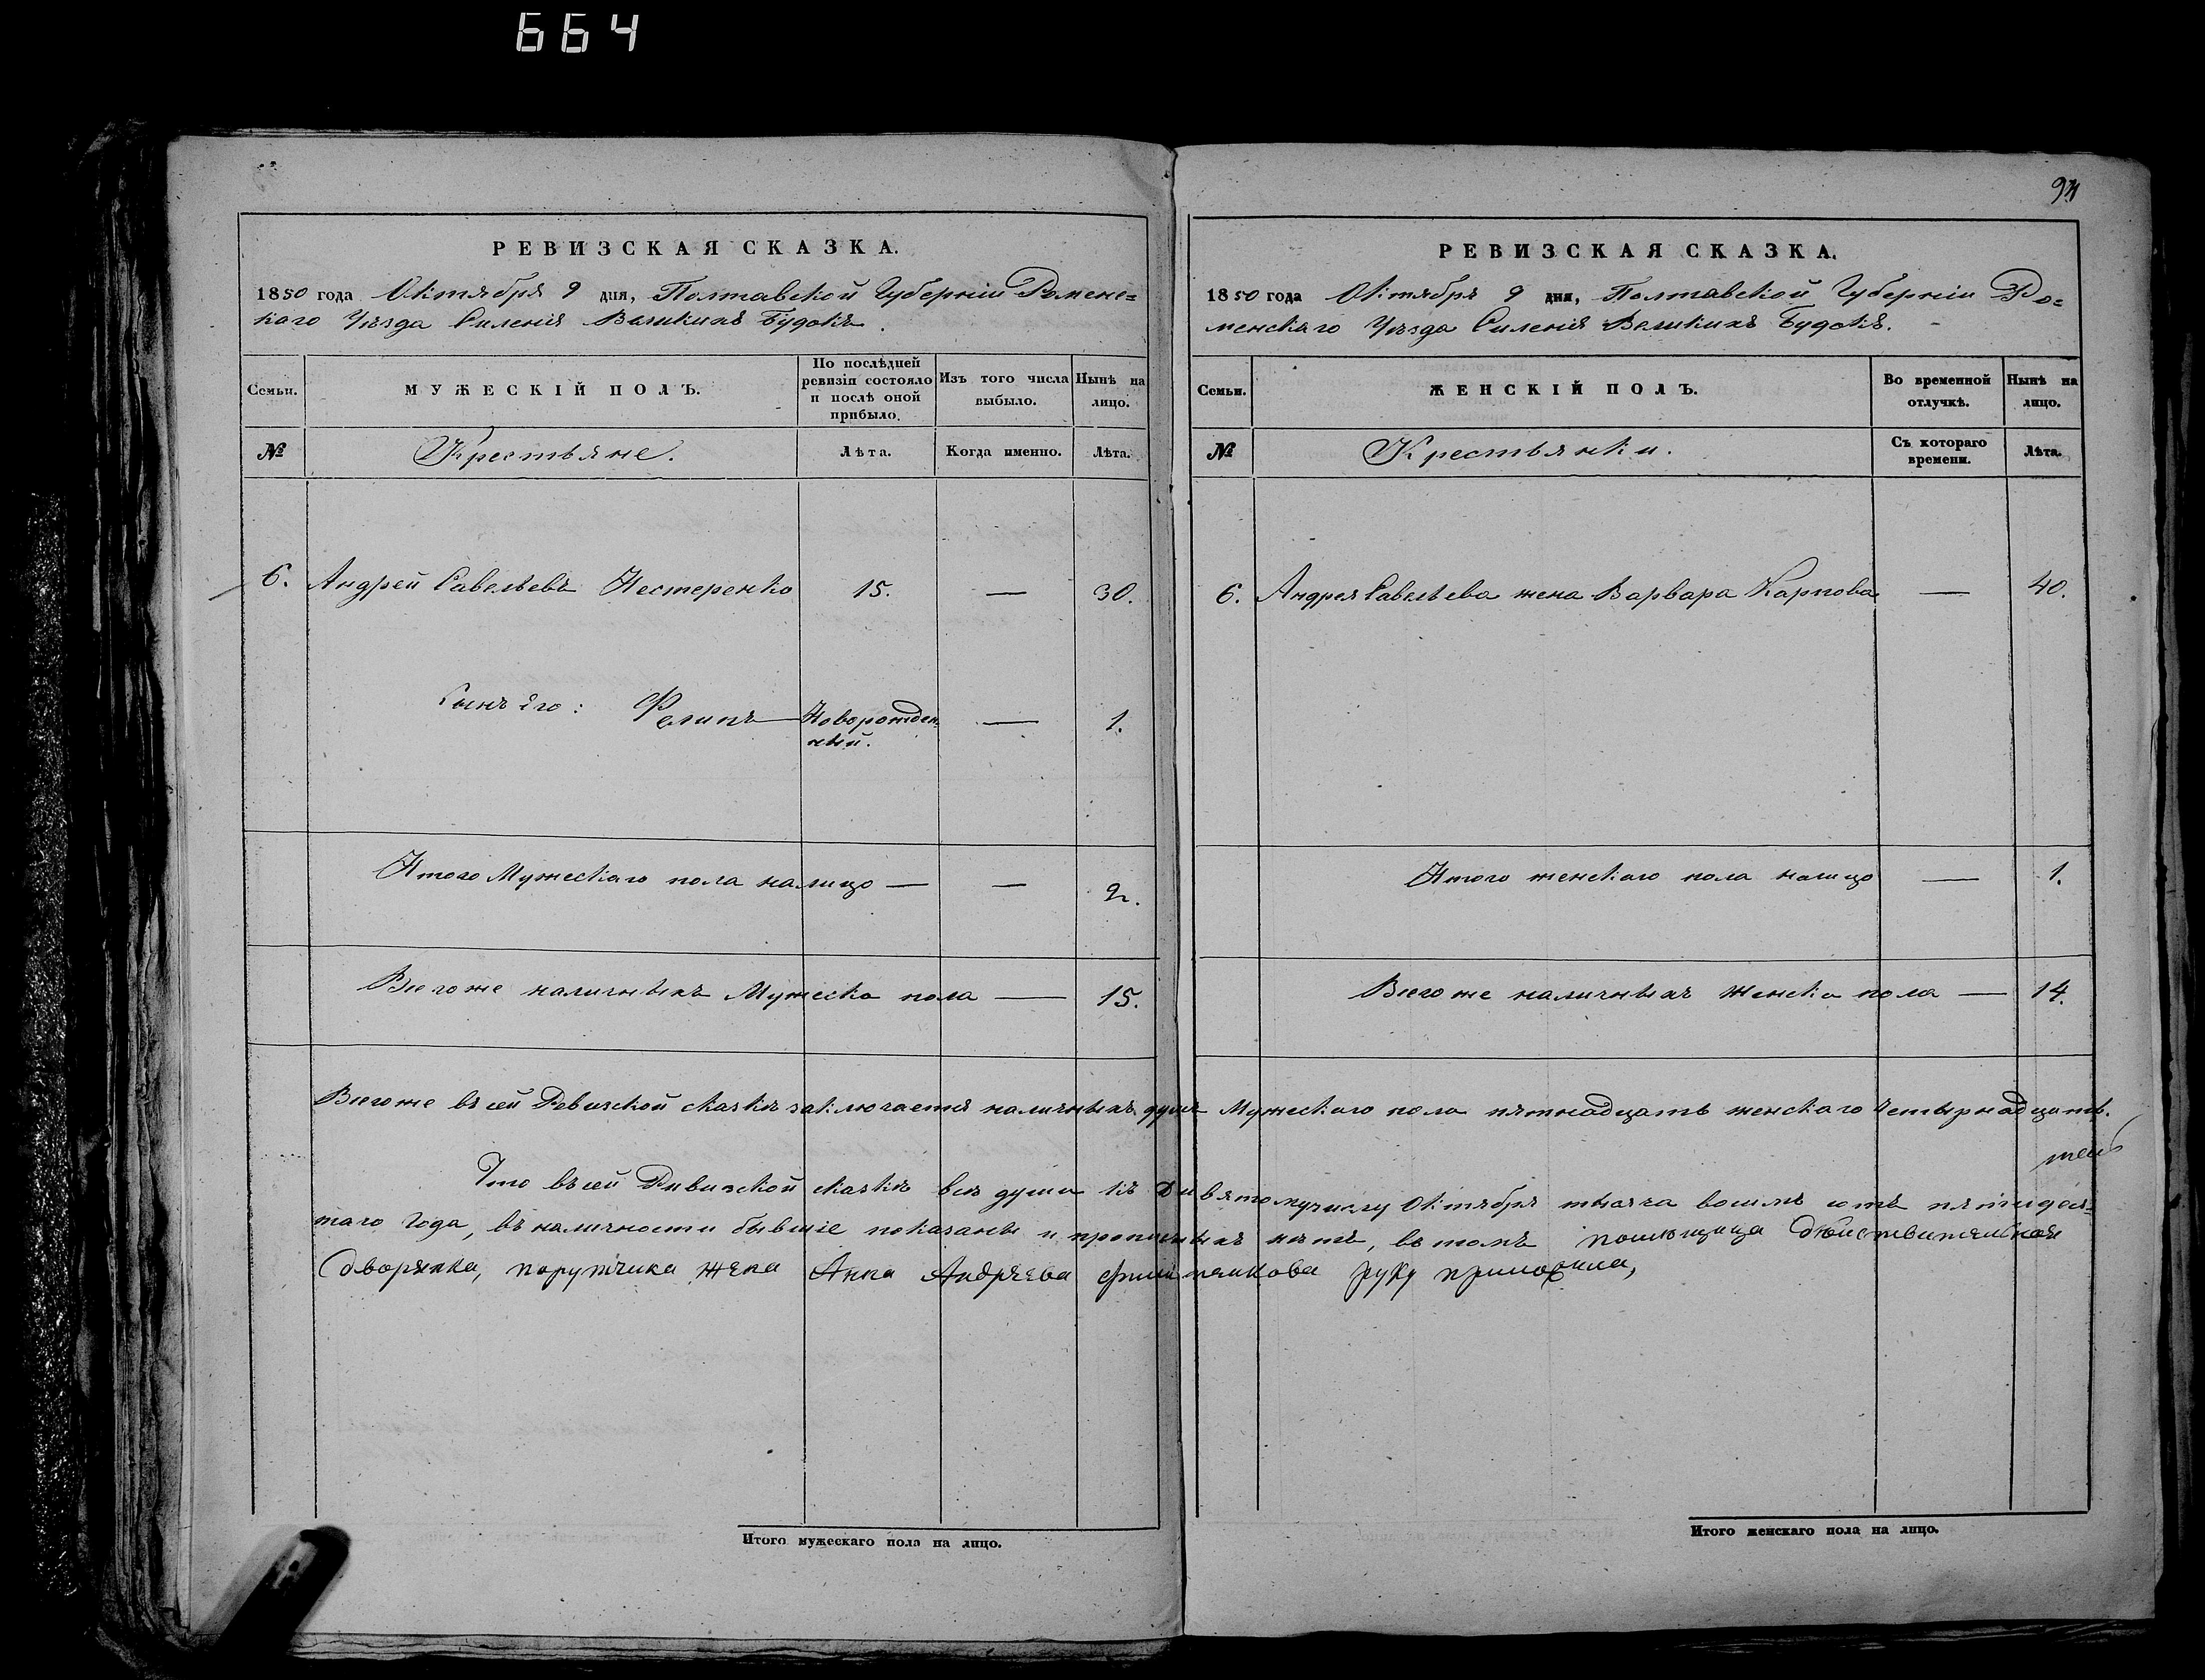 664
РЕВИЗСКАЯ СКАЗКА.
1850 года Октября 9 дня, Полтавской Губерніи Роменс=
каго Уѣзда Силенія Великихъ Будокъ.
Семьи.
МУЖЕСКІЙ ПОЛЪ.
По послѣдней ревизіи состояло и послѣ оной прибыло.
Изъ того числа выбыло.
Нынѣ на лицо.
№
Крестьяне.
Лѣта.
Когда именно.
Лѣта.
6. Андрей Савельевъ Нестеренко 15. — 30.
Сынъ его: Филипъ — Новорожден=
ный. — 1.
Итого Мужескаго пола налицо — — 2.
Всего же наличныхъ Мужеска пола — 15.
РЕВИЗСКАЯ СКАЗКА.
1850 года Октября 9 дня, Полтавской Губерніи Ро=
менскаго Уѣзда Силенія Великихъ Будокъ.
Семьи.
ЖЕНСКІЙ ПОЛЪ.
Во временной отлучкѣ.
Нынѣ на лицо.
№
Крестьянки.
Съ котораго времени.
Лѣта.
6. Андрея Савельева жена Варвара Карпова — 40.
Итого женскаго пола налицо — 1.
Всего же наличныхъ женска пола — 14.
Всего же въ сей Ревизской сказкѣ заключается наличныхъ душъ Мужескаго пола пятнадцать женскаго четырнадцать.
Что въ сей Ревизской сказкѣ всѣ души къ девятому числу Октября тысяча восимъ сотъ пятидеся=
таго Года, въ наличности бывшіе показаны и прописныхъ нѣтъ, въ томъ помѣщица действительная
дворянка, порутчика жена Анна Андреева руку приложила,
Итого мужескаго пола на лицо.
Итого женскаго пола на лицо.